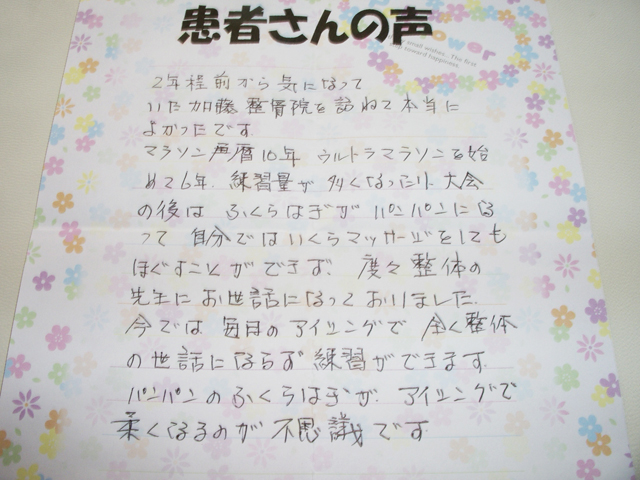 患者さんの声
ower
small wishes - The first
step toward happiness.
2年程前から気になって
いた加藤整骨院を訪ねて本当に
よかったです
マラソン声暦10年 ウルトラマラソンを始
めて6年、練習量が多くなったり、大会
の後は ふくらはぎが パンパンにな
って 自分ではいくらマッサージをしても
ほぐすことができず、度々整体の
先生にお世話になっておりました。
今では 毎日のアイシングで 全く整体
の世話にならず練習ができます。
パンパンのふくらはぎが、アイシングで
柔くなるのが不思議です